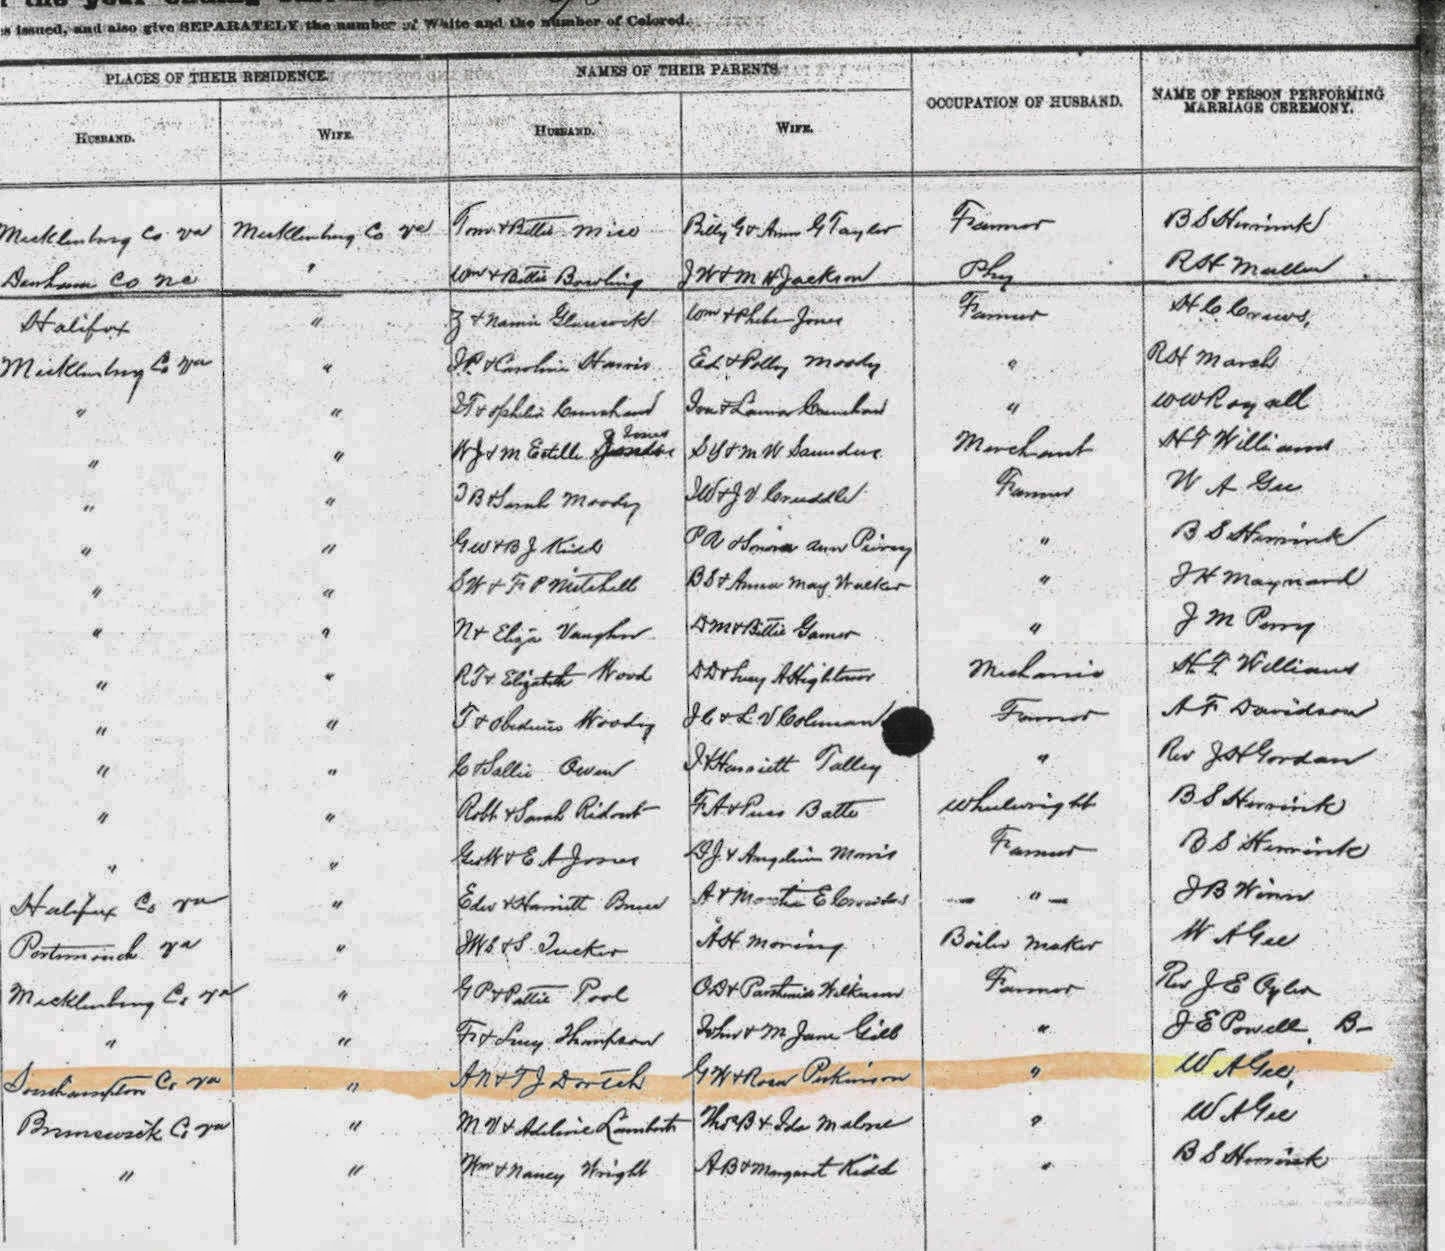 s issued, and also give SEPARATELY the number of White and the number of Colored.
PLACES OF THEIR RESIDENCE. NAMES OF THEIR PARENTS OCCUPATION OF HUSBAND. NAME OF PERSON PERFORMING
MARRIAGE CEREMONY.
HUSBAND. WIFE. HUSBAND. WIFE.
Mecklenburg Co va Mecklenburg Co va Tom & Bettie Mise Billy G & Ann G Taylor Farmer B S Herrink
Durham Co nc " Wm & Bettie Bowling J W & M H Jackson Phy R H Mullen
Halifax " Z & Glasscock Wm & Phebe Jones Farmer H C Crews,
Mecklenburg Co va " & Caroline Harris Ed & Polly Moody " R H Marsh
" " & Ophelia & " W W Royall
" " W J & M Estille Jones S & M W Saunders Merchant H T Williams
" " T B & Sarah Moody & J V Farmer W A Gee
" " Geo & B J Kidd P A & Ann " B S Herrink
" " S W & F P Mitchell B S & Anna May Walker " J H Maynard
" " N & Eliza Vaughn D M & Bettie " J M Perry
" " R T & Elizabeth Wood D D & Lucy A Hightower Mechanic H T Williams
" " T & Moody J C & L V Coleman Farmer A F Davidson
" " C & Sallie Owen & Harriett Talley " Rev J H Gordan
" " Robt & Sarah Ridout F A & Batte Wheelwright B S Herrink
" " Geo W & E A Jones D J & Angeline Morris Farmer B S Herrink
Halifax Co va " Edw & Harriett Bruce A & E " J B Winn
Portsmouth va " & S Tucker A H Moring Boiler Maker W A Gee
Mecklenburg Co va " G P & Pattie Pool O D & Wilkinson Farmer Rev J E
" " F & Lucy Thompson John & M Jane Gill " J E Powell, B-
Southampton Co va " A N & T J Dortch G W & Rosa Perkinson " W A Gee,
Brunswick Co va " M V & Adeline Lambert Thos B & Ida Malone " W A Gee
" " Wm & Nancy Wright A B & Margaret Kidd " B S Herrink